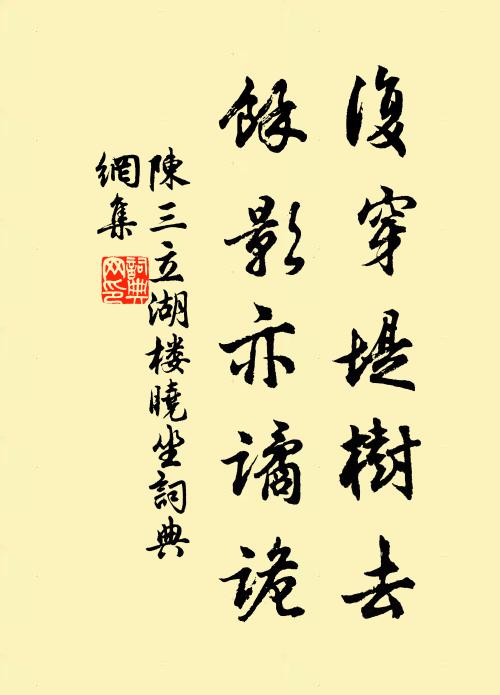 復穿堤樹去
餘影亦譎詭
陳三立湖楼曉坐詞典
網集
詞典
网印